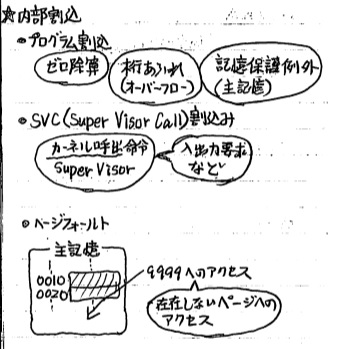 ★内部割込
●プログラム割込
ゼロ除算
桁あふれ
(オーバーフロー)
記憶保護例外
(主記憶)
●SVC(Super Visor Call)割込み
カーネル呼出命令
Super Visor
入出力要求
など
●ページフォールト
主記憶
0010
0020
9999へのアクセス
存在しないページへの
アクセス